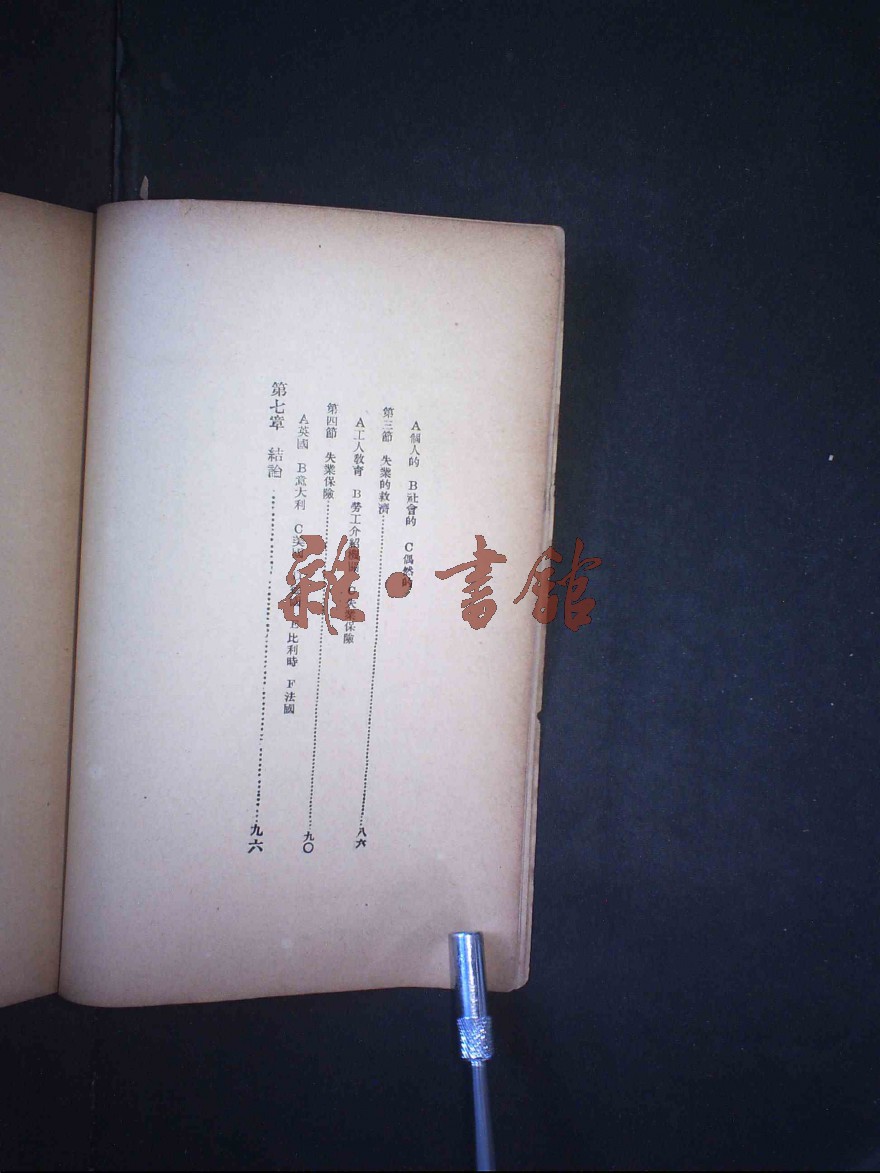 A個人的 B社會的 C偶然的
第三節 失業的救濟……八六
A工人敎育 B勞工介紹 保險
第四節 失業保險……九〇
A英國 B意大利 C美國 比利時 F法國
第七章 結論……九六
雜·書館